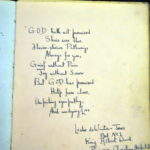 GOD hath not promised
Skies ever blue
Flower-strewn Pathways
Always for you,
Grief without Pain
Joy without Sorrow
But GOD has promised
Help from above
Unfailing sympathy
And undying love
Leslie
King Albert Ward